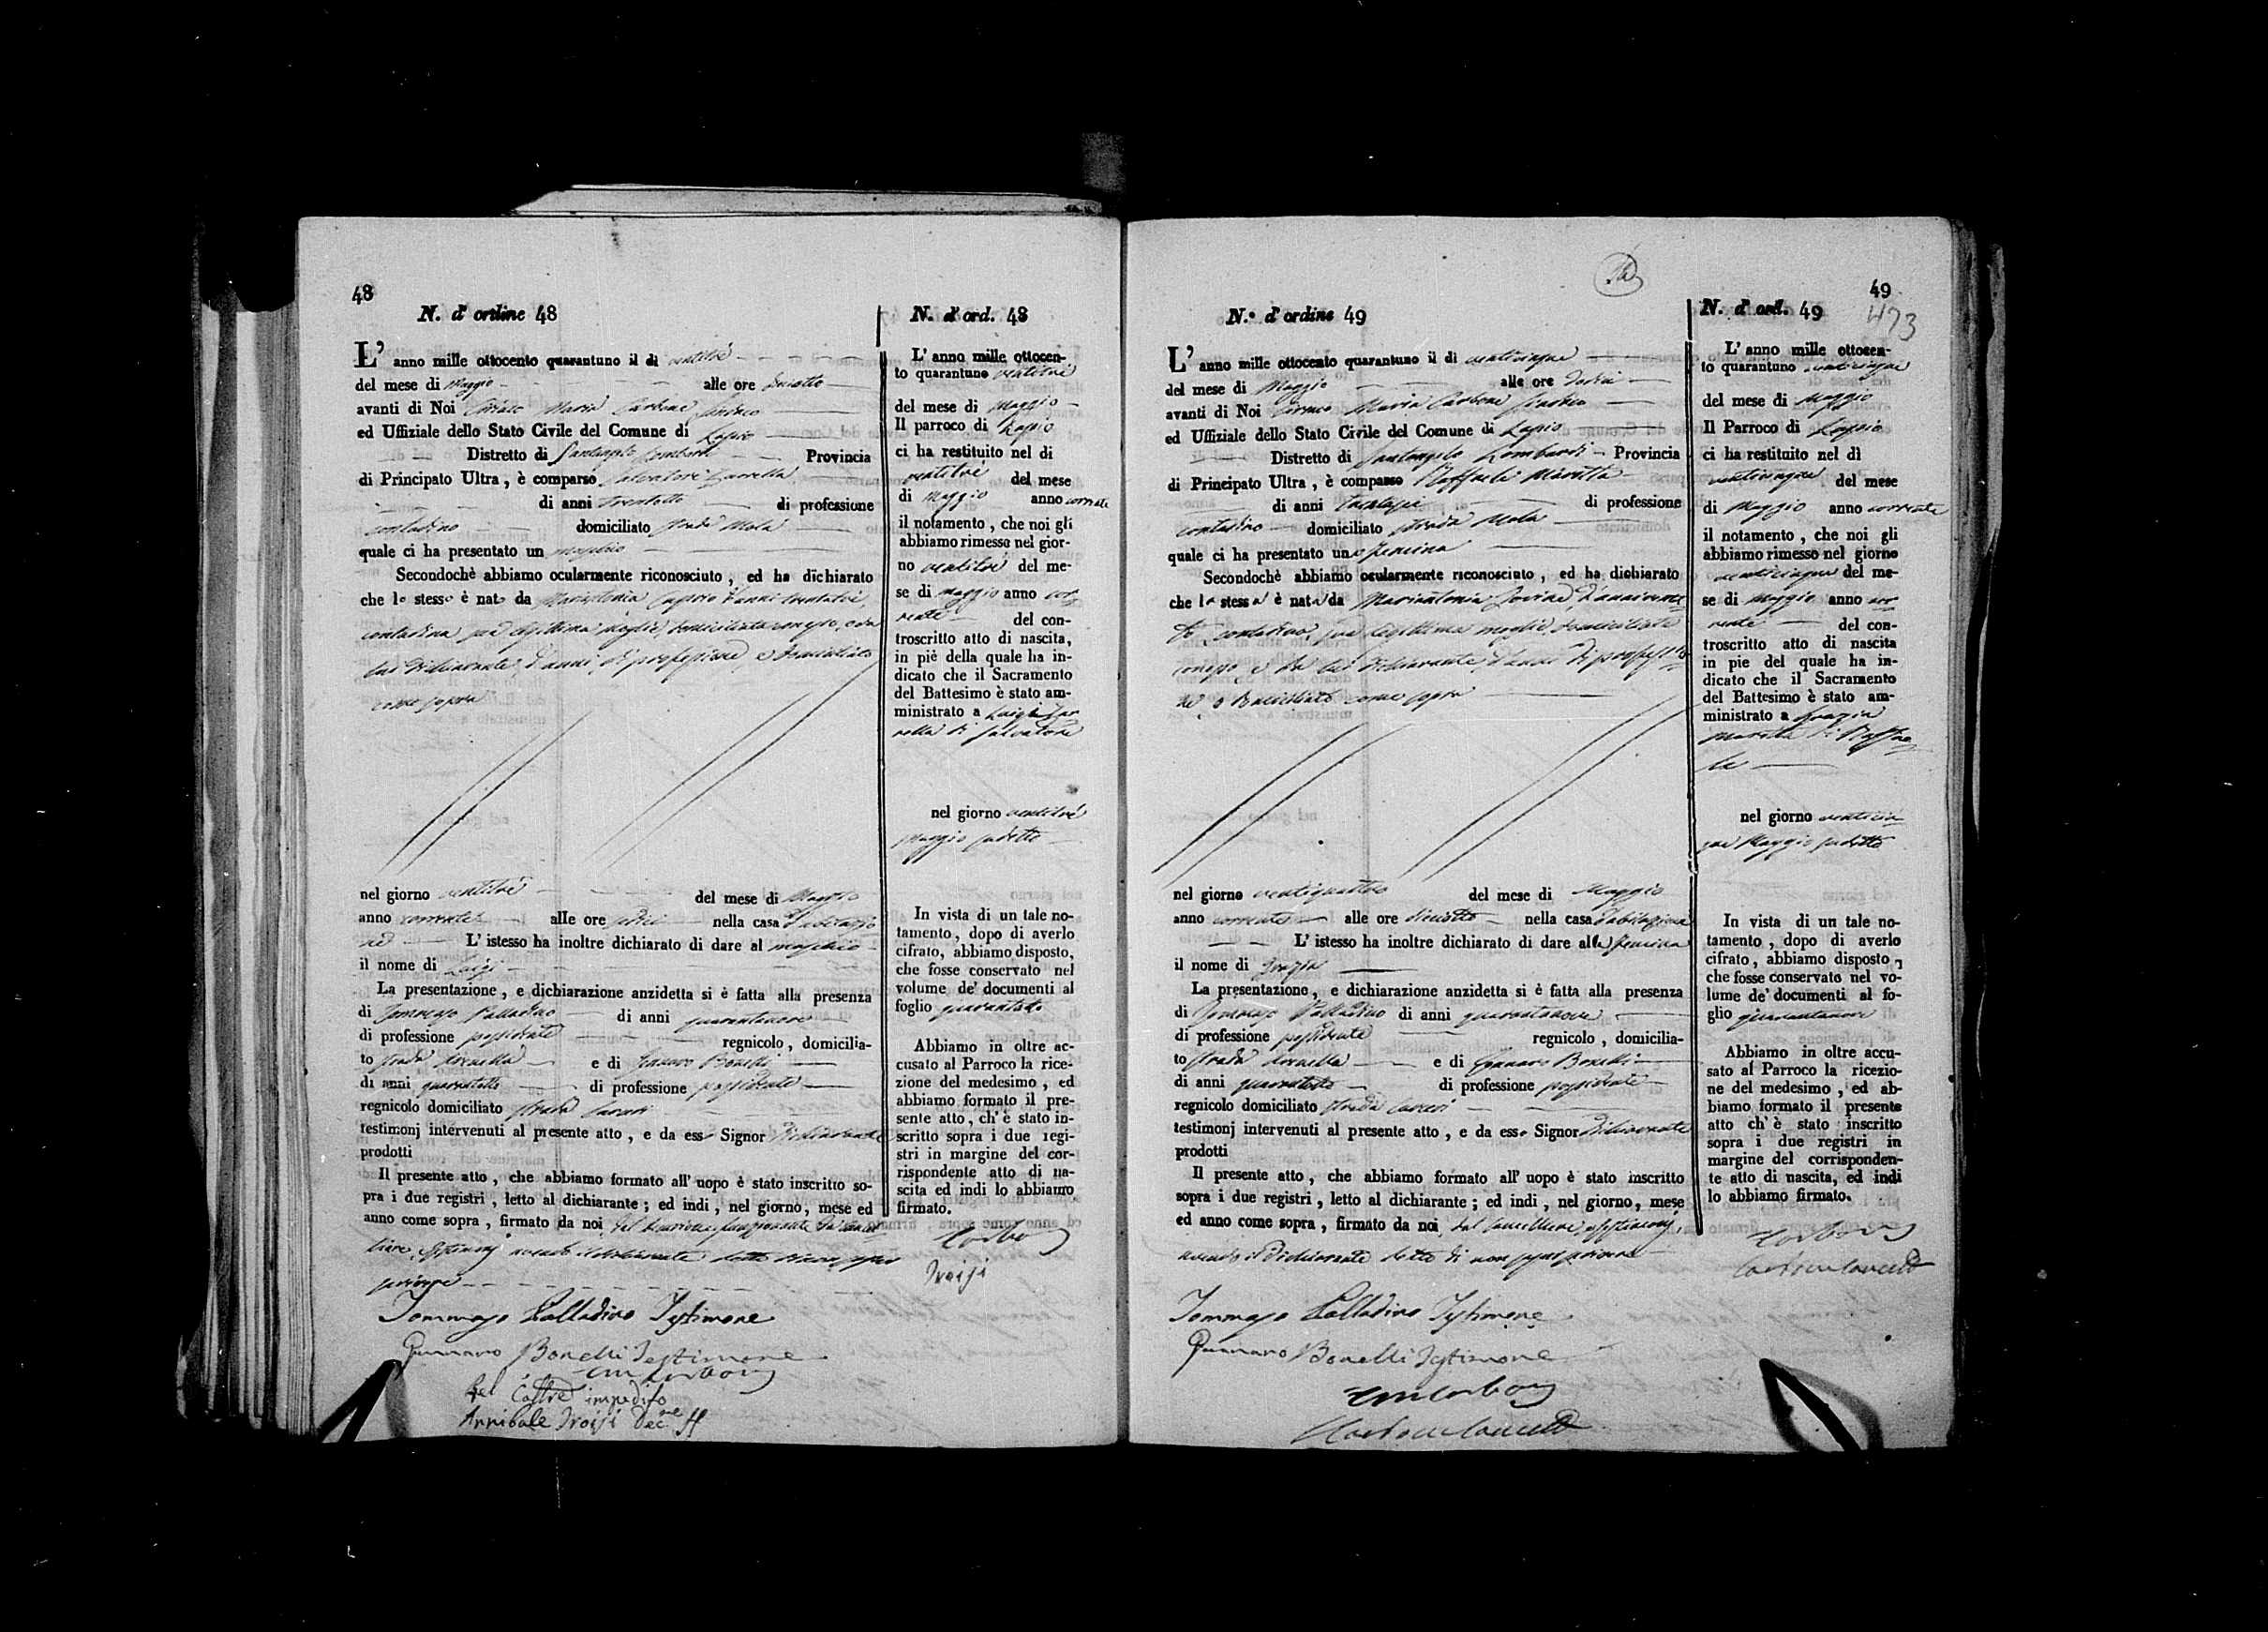 48
N. d' ordine 48
L' anno mille ottocento quarantuno il di ventitrè
del mese di Maggio alle ore diciotto
avanti di Noi Ciriaco Maria Carbone Sindaco
ed Uffiziale dello Stato Civile del Comune di Lapio
Distretto di Santangelo Lombardi Provincia
di Principato Ultra, è comparso Salvatore Zarrella
di anni trentotto di professione
contadino domiciliato strada Mola
quale ci ha presentato un maschio
Secondochè abbiamo ocularmente riconosciuto, ed ha dichiarato
che lo stesso è nato da Mariantonia Caprio d'anni trentatrè,
contadina sua legittima moglie, domiciliata con esso, e da
lui dichiarante, d'anni di professione, e domiciliato
come sopra
nel giorno ventitrè del mese di Maggio
anno corrente alle ore sedici nella casa d'abitazio
ne L' istesso ha inoltre dichiarato di dare al maschio
il nome di Luigi
La presentazione, e dichiarazione anzidetta si è fatta alla presenza
di Tommaso Palladino di anni quarantanove
di professione possidente regnicolo, domicilia-
to strada e di Gennaro Bonelli
di anni quarantotto di professione possidente
regnicolo domiciliato strada Carceri
testimonj intervenuti al presente atto, e da esso Signor Dichiarante
prodotti
Il presente atto, che abbiamo formato all' uopo è stato inscritto so-
pra i due registri, letto al dichiarante; ed indi, nel giorno, mese ed
anno come sopra, firmato da noi, dal Decurione funzionante da Cancel
liere, e testimonj avendo il dichiarante detto di non saper
scrivere
Tommaso Palladino Testimone
Gennaro Bonelli Testimone
CM Carbone
Pel Canc.re impedito
Annibale Troisi Dec.ne ff
N. d' ord. 48
L' anno mille ottocen-
to quarantuno ventitrè
del mese di Maggio
Il parroco di Lapio
ci ha restituito nel di
ventitrè del mese
di Maggio anno corrente
il notamento, che noi gli
abbiamo rimesso nel gior-
no ventitrè del me-
se di Maggio anno cor
rente del con-
troscritto atto di nascita,
in piè della quale ha in-
dicato che il Sacramento
del Battesimo è stato am-
ministrato a Luigi Zar
rella di Salvatore
nel giorno ventitrè
Maggio sudetto
In vista di un tale no-
tamento, dopo di averlo
cifrato, abbiamo disposto,
che fosse conservato nel
volume de' documenti al
foglio quarantotto
Abbiamo in oltre ac-
cusato al Parroco la rice-
zione del medesimo, ed
abbiamo formato il pre-
sente atto, ch' è stato in-
scritto sopra i due regi-
stri in margine del cor-
rispondente atto di na-
scita ed indi lo abbiamo
firmato.
Carbone
Troisi
49
473
N.° d' ordine 49
L' anno mille ottocento quarantuno il di venticinque
del mese di Maggio alle ore dodici
avanti di Noi Ciriaco Maria Carbone Sindaco
ed Uffiziale dello Stato Civile del Comune di Lapio
Distretto di Santangelo Lombardi Provincia
di Principato Ultra, è comparso Raffaele Marotta
di anni trentasei di professione
contadino domiciliato strada Mola
quale ci ha presentato una femina
Secondochè abbiamo ocularmente riconosciuto, ed ha dichiarato
che la stessa è nata da Mariantonia Iovine, d'anni
contadina, sua legittima moglie, domiciliata
con esso, e da lui dichiarante, d'anni di professio
ne, e domiciliato come sopra
nel giorno ventiquattro del mese di Maggio
anno corrente alle ore diciotto nella casa d'abitazione
L' istesso ha inoltre dichiarato di dare alla femina
il nome di Grazia
La presentazione, e dichiarazione anzidetta si è fatta alla presenza
di Tommaso Palladino di anni quarantanove
di professione possidente regnicolo, domicilia-
to strada e di Gennaro Bonelli
di anni quarantotto di professione possidente
regnicolo domiciliato strada Carceri
testimonj intervenuti al presente atto, e da esso Signor Dichiarante
prodotti
Il presente atto, che abbiamo formato all' uopo è stato inscritto
sopra i due registri, letto al dichiarante; ed indi, nel giorno, mese
ed anno come sopra, firmato da noi, dal Cancelliere, e testimonj,
avendo il Dichiarante detto di non saper scrivere
Tommaso Palladino Testimone
Gennaro Bonelli Testimone
CM Carbone
N. d' ord. 49
L' anno mille ottocen-
to quarantuno venticinque
del mese di Maggio
Il Parroco di Lapio
ci ha restituito nel dì
venticinque del mese
di Maggio anno corrente
il notamento, che noi gli
abbiamo rimesso nel giorno
venticinque del me-
se di Maggio anno cor
rente del con-
troscritto atto di nascita
in pie del quale ha in-
dicato che il Sacramento
del Battesimo è stato am-
ministrato a Grazia
Marotta di Raffae
le
nel giorno venticin
que Maggio sudetto
In vista di un tale no-
tamento, dopo di averlo
cifrato, abbiamo disposto,
che fosse conservato nel vo-
lume de' documenti al fo-
glio quarantanove
Abbiamo in oltre accu-
sato al Parroco la ricezio-
ne del medesimo, ed ab-
biamo formato il presente
atto ch' è stato inscritto
sopra i due registri in
margine del corrisponden-
te atto di nascita, ed indi
lo abbiamo firmato.
Carbone